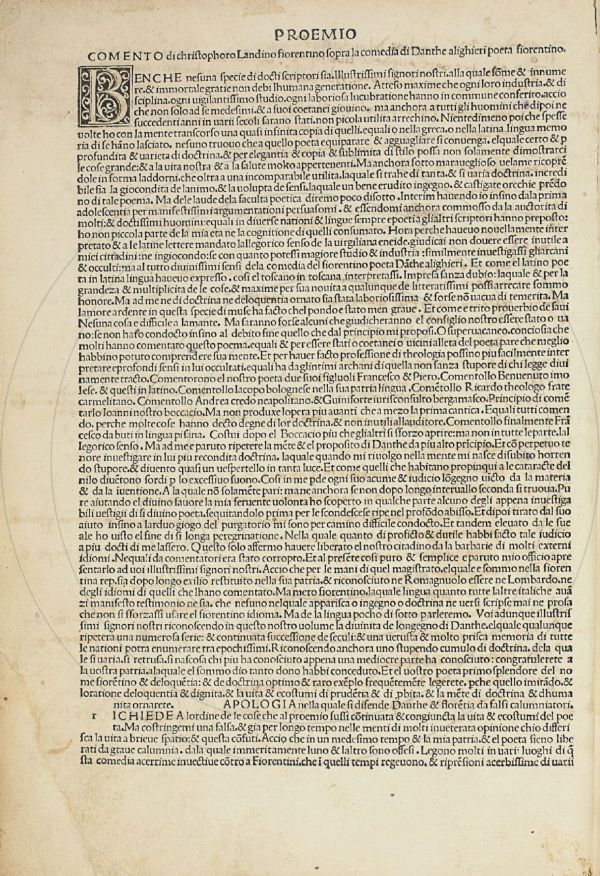 PROEMIO
COMENTO di christophoro Landino fiorentino sopra la comedia di Danthe alighieri poeta fiorentino.
BENCHE nesuna specie di docti scriptori sia, Illustrissimi signori nostri, alla quale sōme & innume
re, & immortale gratie non debi lhumana generatione. Atteso maxime che ogni loro industria, & di
sciplina, ogni vigilantissimo studio, ogni laboriosa lucubratione hanno in commune conserito, accio
che non solo ad se medesimi, & a suoi coetanei giovino, ma anchora a tutti gli huomini che dipoi ne
succedenti anni in uarii secoli sarano stati, non picola utilita arrechino. Nientedimeno poi che spesse
uolte ho con la mente transcorso una quasi infinita copia di quelli, equali o nella greca, o nella latina lingua memo
ria di se hāno lasciato, nesuno truouo che a quello poeta equiparare & agguagliare si conuenga, elquale certo & p
profundita & uarieta di doctrina, & per elegantia & copia & sublimita di stilo possa non solamente dimostrarci
le cose grande: & a la uita nostra & a la salute molto appertenenti. Ma anchora sotto marauegliosо uelame ricoprē
dole in forma laddorni, che oltra a una incomparabile utilita, laquale si trahe di tanta, & si uaria doctrina, incredi
bile sia la giocondita de lanimo, & la uolupta de sensi, laquale un bene erudito ingegno, & castigate orechie prēdo
no di tale poema. Ma de le laude dela faculta poetica diremo poco disotto. Interim hauendo io insino dala prima
adolescentia per manifestissimi argumentationi persuasomi, & essendomi anchora commosso da la auctorita di
molti: & doctissimi huomini: equali in diuerse nationi & lingue sempre e poeti gli altri scriptori hanno preposto:
ho non piccola parte de la mia eta ne la cognitione di quelli consumato. Hora perche haueuo nouellamente inter
pretato & a le latine lettere mandato lallegorico senso de la uirgiliana eneide, giudicai non douere essere inutile a
miei cittadini: ne ingiocondo: se con quanto potessi magiore studio & industria: similmente inuestigassi gli arcani
& occulti: ma al tutto diuinissimi sensi dela comedia del fiorentino poeta Dāthe alighieri. Et come el latino poe
ta in latina lingua haueuo expresso, cosi el toscano in toscana interpretassi. Impresa senza dubio: laquale & per la
grandeza & multiplicita de le cose, & maxime per sua nouita a qualunque de litteratissimi possi arrecare sommo
honore. Ma ad me ne di doctrina ne deloquentia ornato sia stata laboriosissima & forse nō uacua di temerita. Ma
lamore ardente in questa specie di muse ha facto chel pondo e stato men graue. Et come e trito prouerbio de saui
Nesuna cosa e difficile a lamante. Ma faranno forse alcuni che giudicheranno el consiglio nostro essere stato o ua
no: se non harō condocto insino al debito fine quello che dal principio mi proposi. O superuacaneo, conciosia che
molti hanno comentato questo poema, equali & per essere stati o coetanei o uicini alleta del poeta pare che meglio
habbino potuto comprendere sua mente. Et per hauer facto professione di theologia possino piu facilmente inter
pretare e profondi sensi in lui occultati, equali ha dagli intimi archani di quella non sanza stupore di chi legge diui
namente tracto. Comentorono el nostro poeta due suoi figluoli Francesco & Piero. Comentollo Benuenuto imo
lese, & questi in latino. Comentollo Iacopo bolognese nella sua patria lingua. Comētollo Ricardo theologo frate
carmelitano. Comentollo Andrea credo neapolitano. & Guiniforte iurisconsulto bergamasco. Principio di comē
tarlo Ioanni nostro boccacio. Ma non produxe lopera piu auanti che a mezo la prima cantica. Equali tutti comen
do, perche molte cose hanno decto degne di lor doctrina, & non inutili allauditore. Comentollo finalmente Frā
cesco da buti in lingua pisana. Costui depo el Boccacio piu che gli altri si sforzo aprire: ma non in tutte le parte, lal
legorico senso. Ma ad me a paruto ripetere la mēte & el proposito di Danthe da piu alto pricipio. Et cō perpetuo te
nore inuestigare in lui piu recondita doctrina, laquale quando mi riuolgo nella mente mi nasce di subito horren
do stupore, & diuento quasi un uespertello in tanta luce. Et come quelli che habitano propinqui a le cataracte del
nilo diuētono sordi p lo excessiuo suono. Cosi in me p de ogni suo acume & iudicio lōgegno uicto da la materia
& da la iuentione. A la quale nō solamēte pari: ma ne anchora se non dopo longo interuallo seconda si truoua. Pu
re aiutando el diuino fauore la mia feruente uolonta ho scoperto in qualche parte alcuno degli appena inuestiga
bili uestigii di si diuino poeta, sequitandolo prima per le scondescese ripe nel profōdo abisso. Et dipoi tirato dal suo
aiuto insino a larduo giogo del purgatorio mi sono per camino difficile condocto. Et tandem eleuato da le sue
ale ho uisto el fine di si longa peregrinatione. Nella quale quanto di profictto & dutile habbi facto tale iudicio
a piu docti di me lassero. Questo solo affermo hauere liberato el nostro citadino da la barbarie di molti externi
idiomi. Ne quali da comentatori era stato corropto. Et al presēte cosi puro & semplice e paruto mio officio apre
sentarlo ad uoi illustrissimi signori nostri. Accio che per le mani di quel magistrato, elquale e sommo nella fioren
tina rep. sia dopo longo exilio restituito nella sua patria, & riconosciuto ne Romagnuolo essere ne Lombardo, ne
degli idiomi di quelli che lhano comentato. Ma mero fiorentino, laquale lingua quanto tutte laltre italiche auā
zi manifesto testimonio ne sia, che nesuno nelquale apparisca o ingegno o doctrina ne uersi scripse mai ne prosa
che non si sforzassi usare el fiorentino idioma. Ma de la lingua pocho di sotto parleremo. Voi adunque illustris
simi signori nostri riconoscendo in questo nostro uolume la diuinita de longegno di Danthe, elquale qualunque
ripetera una numerosa serie: & continuata successione de seculi: & una uetusta & molto prisca memoria di tutte
le nationi potra enumerare tra e pochissimi. Riconoscendo anchora uno stupendo cumulo di doctrina, dela qua
le si uaria, si retrusa, si nascosa chi piu ha conosciuto appena una mediocre parte ha conosciuto: congratulerete a
la uostra patria, alaquale el sommo dio tanto dono habbi conceduto. Et el uostro poeta primo splendore del no
me fiorētino & deloquētia: & de doctrina optimo & raro exēplo frequētemēte legerete, pche quello imitādo, &
loratione deloquentia & dignita, & la uita & e costumi di prudēta & di pbita, & la mēte di doctrina & dhuma
nita ornarete. APOLOGIA nella quale si difende Danthe & florētia da falsi calumniatori.
r ICHIEDEA lordine de le cose che al proemio fussi cōtinuata & congiuncta la uita & e costumi del poe
ta. Ma constringemi una falsa, & gia per longo tempo nelle menti di molti inueterata opinione chio differi
sca la uita a brieue spatio: & questa cōfuti. Accio che in un medesimo tempo & la mia patria, & el poeta sieno libe
rati da graue calumnia, dala quale immeritamente luno & laltro sono offesi. Legono molti in uarii luoghi di q̄
sta comedia acerrime inuectiue cōtro a Fiorentini, che ī quelli tempi regeuono, & ripresioni acerbissime di uarii